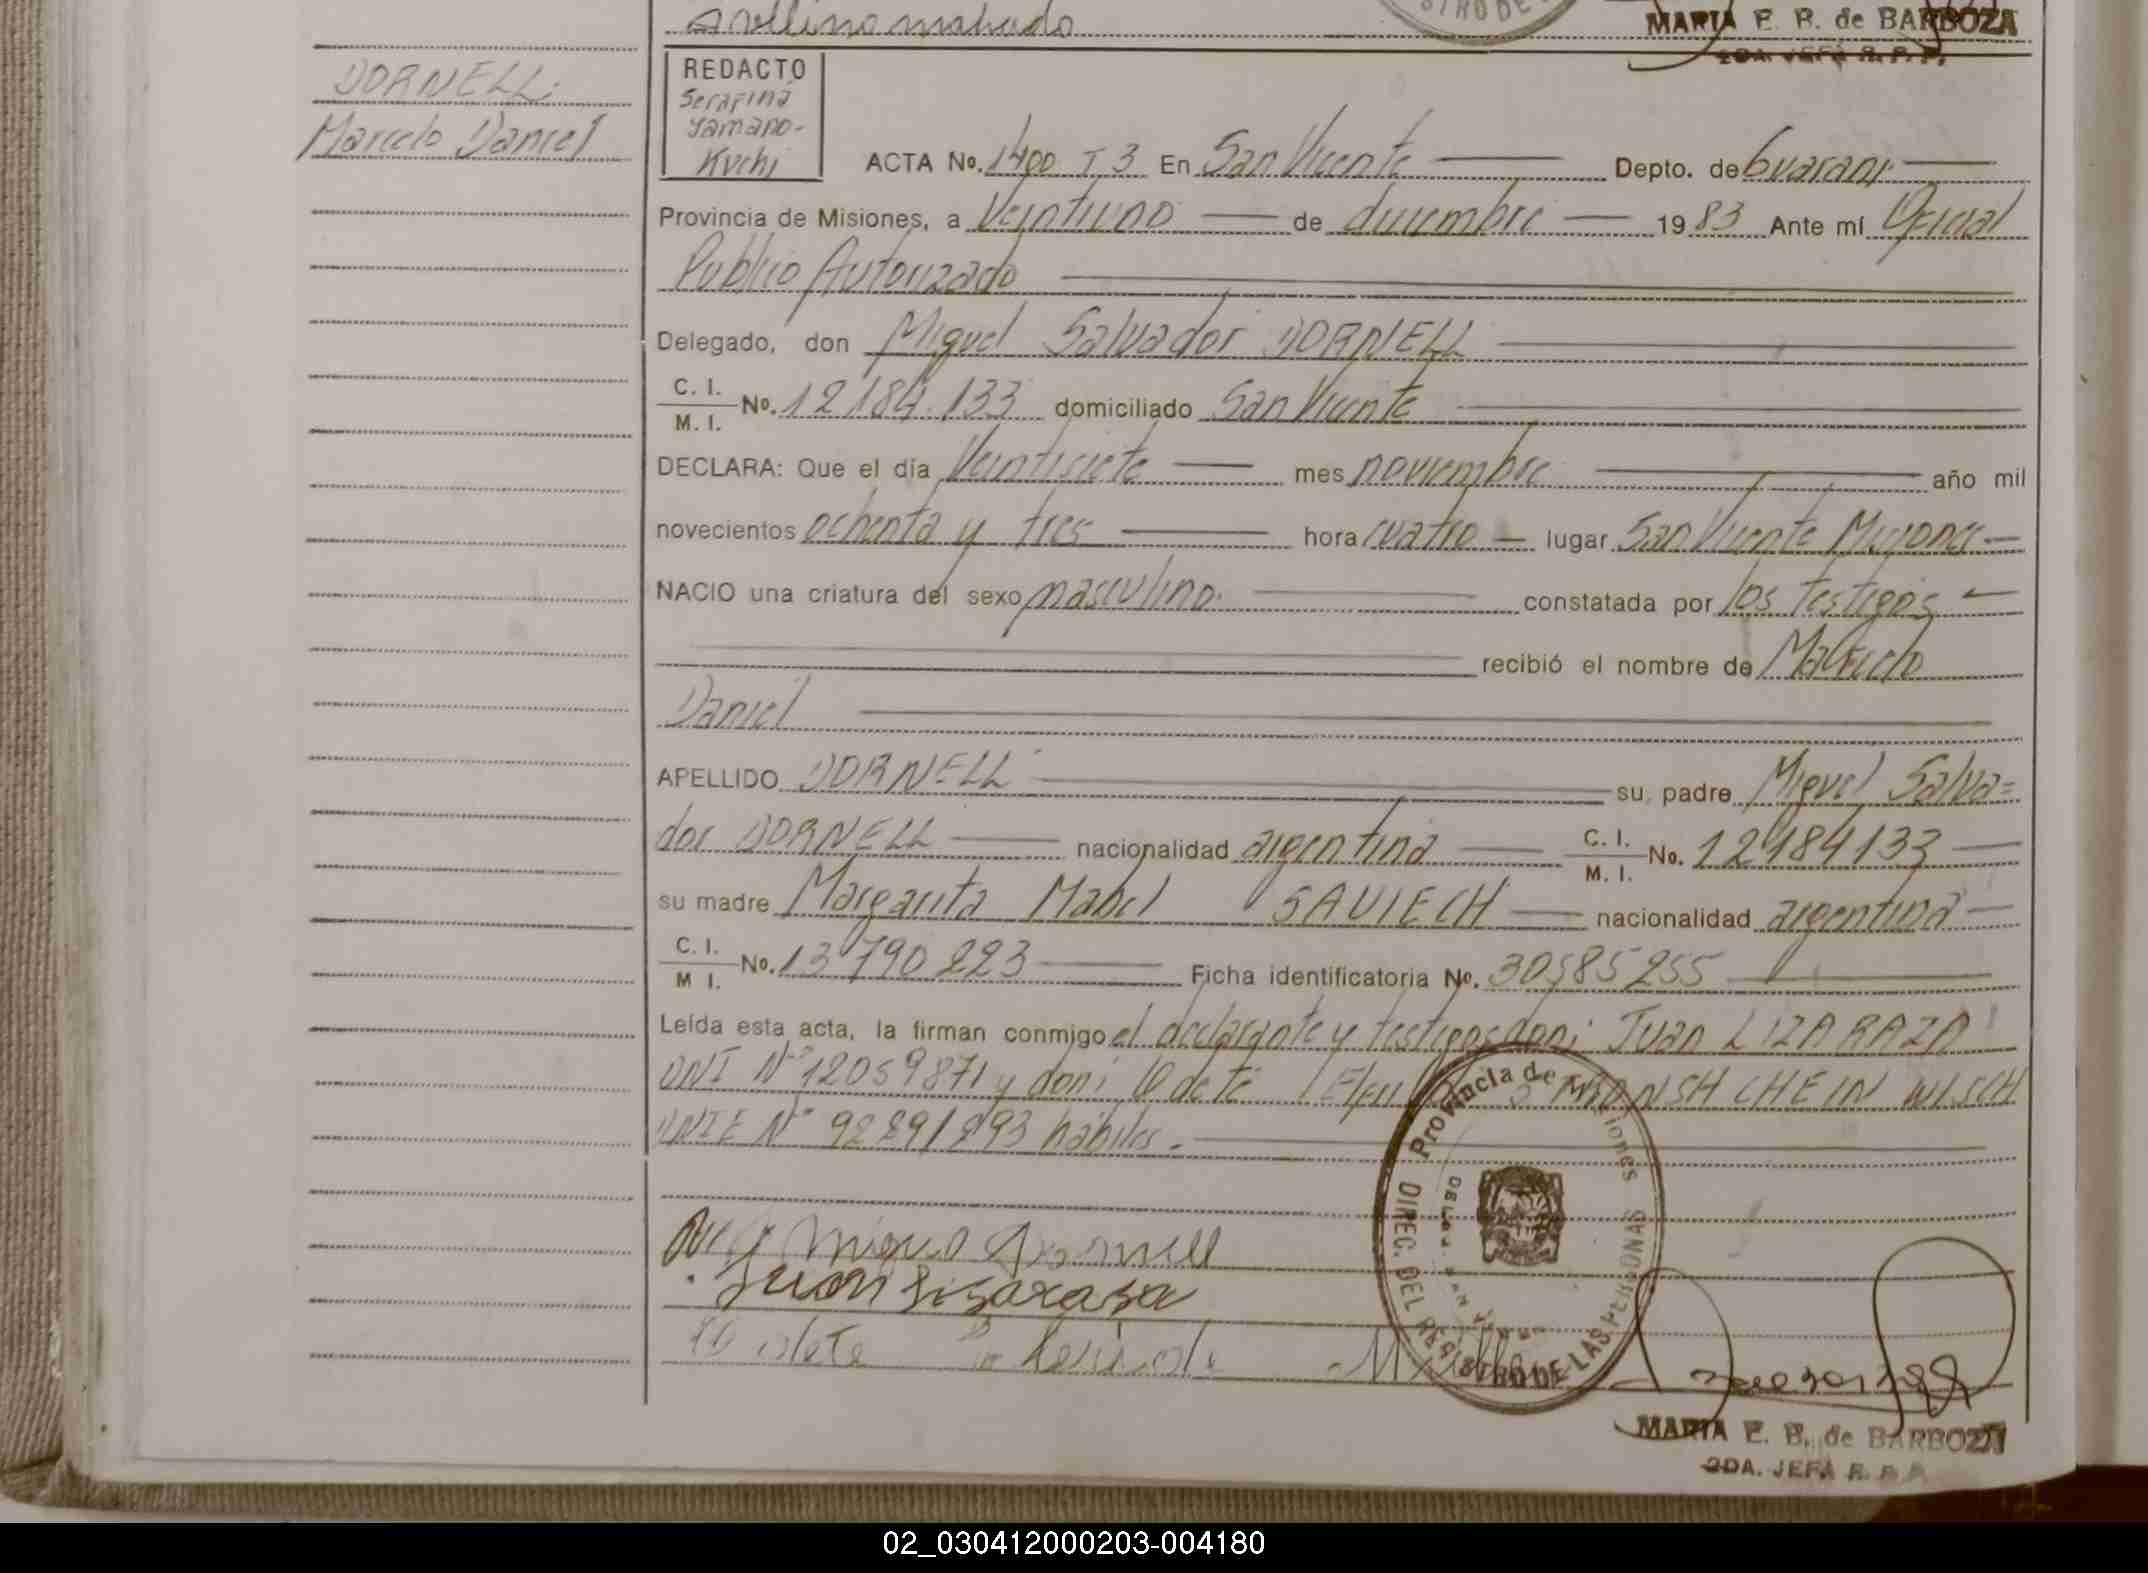 Avelino machado
MARIA E. B. de BARBOZA
2DA. JEFA R. P. P.
DORNELL
Marcelo Daniel
REDACTO
Serafina
Yamano-
Kuchi
ACTA No. 1400 T 3 En San Vicente Depto. de Guarani
Provincia de Misiones, a Veintiuno de diciembre 1983 Ante mí Oficial
Publico Autorizado
Delegado, don Miguel Salvador DORNELL
C. I.
M. I. No. 12184.133 domiciliado San Vicente
DECLARA: Que el día Veintisiete mes noviembre año mil
novecientos ochenta y tres hora cuatro lugar San Vicente Misiones
NACIO una criatura del sexo masculino. constatada por los testigos
recibió el nombre de Marcelo
Daniel
APELLIDO DORNELL su padre Miguel Salva=
dor DORNELL nacionalidad argentina C. I.
M. I. No. 12184133
su madre Margarita Mabel SAVIECH nacionalidad argentina
C. I.
M I. No. 13790223 Ficha identificatoria No. 30585255
Leída esta acta, la firman conmigo el declarante y testigos don: Juan LIZARAZA
DNI Nº 12059871 y doni Odete
DNIE Nº 92291293 habiles.-
Provincia de Misiones
DIREC. DEL REGISTRO DE LAS PERSONAS
Miguel Dornell
Juan Lisarasa
Odete
MARIA E. B. de BARBOZA
2DA. JEFA R. P. P.
02_030412000203-004180